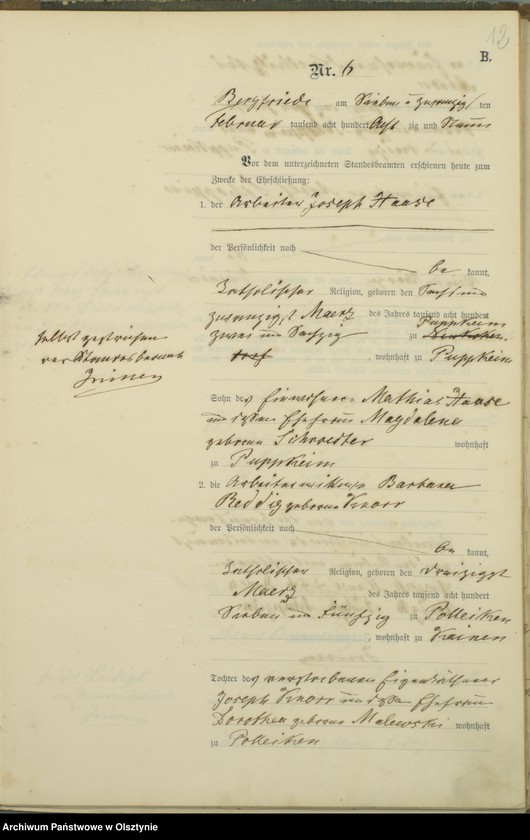 12
B.
Nr. 6
Bergfriede am Sieben u zwanzig ten
Februar tausend acht hundert Acht zig und Neun
Vor dem unterzeichneten Standesbeamten erschienen heute zum
Zwecke der Eheschließung:
1. der Arbeiter Joseph Haase
der Persönlichkeit nach
be kannt,
katholischer Religion, geboren den
zwanzigst Maerz des Jahres tausend acht hundert
zwei und Sechzig zu Puppkeim
, wohnhaft zu Puppkeim
Sohn des Einwohners Mathias Haase
und dessen Ehefrau Magdalena
geborene Schroedter wohnhaft
zu Puppkeim
2. die Arbeiterwittwe Barbara
Reddig geborene Knorr
der Persönlichkeit nach
be kannt,
katholischer Religion, geboren den dreizigst
Maerz des Jahres tausend acht hundert
Sieben und Fünfzig zu Polleiken
, wohnhaft zu Kainen
Tochter des verstorbenen Eigenkäthners
Joseph Knorr und dessen Ehefrau
Dorothea geborene Malewski wohnhaft
zu Polleiken
Selbst gestrichen
der Standesbeamte
Archiwum Państwowe w Olsztynie